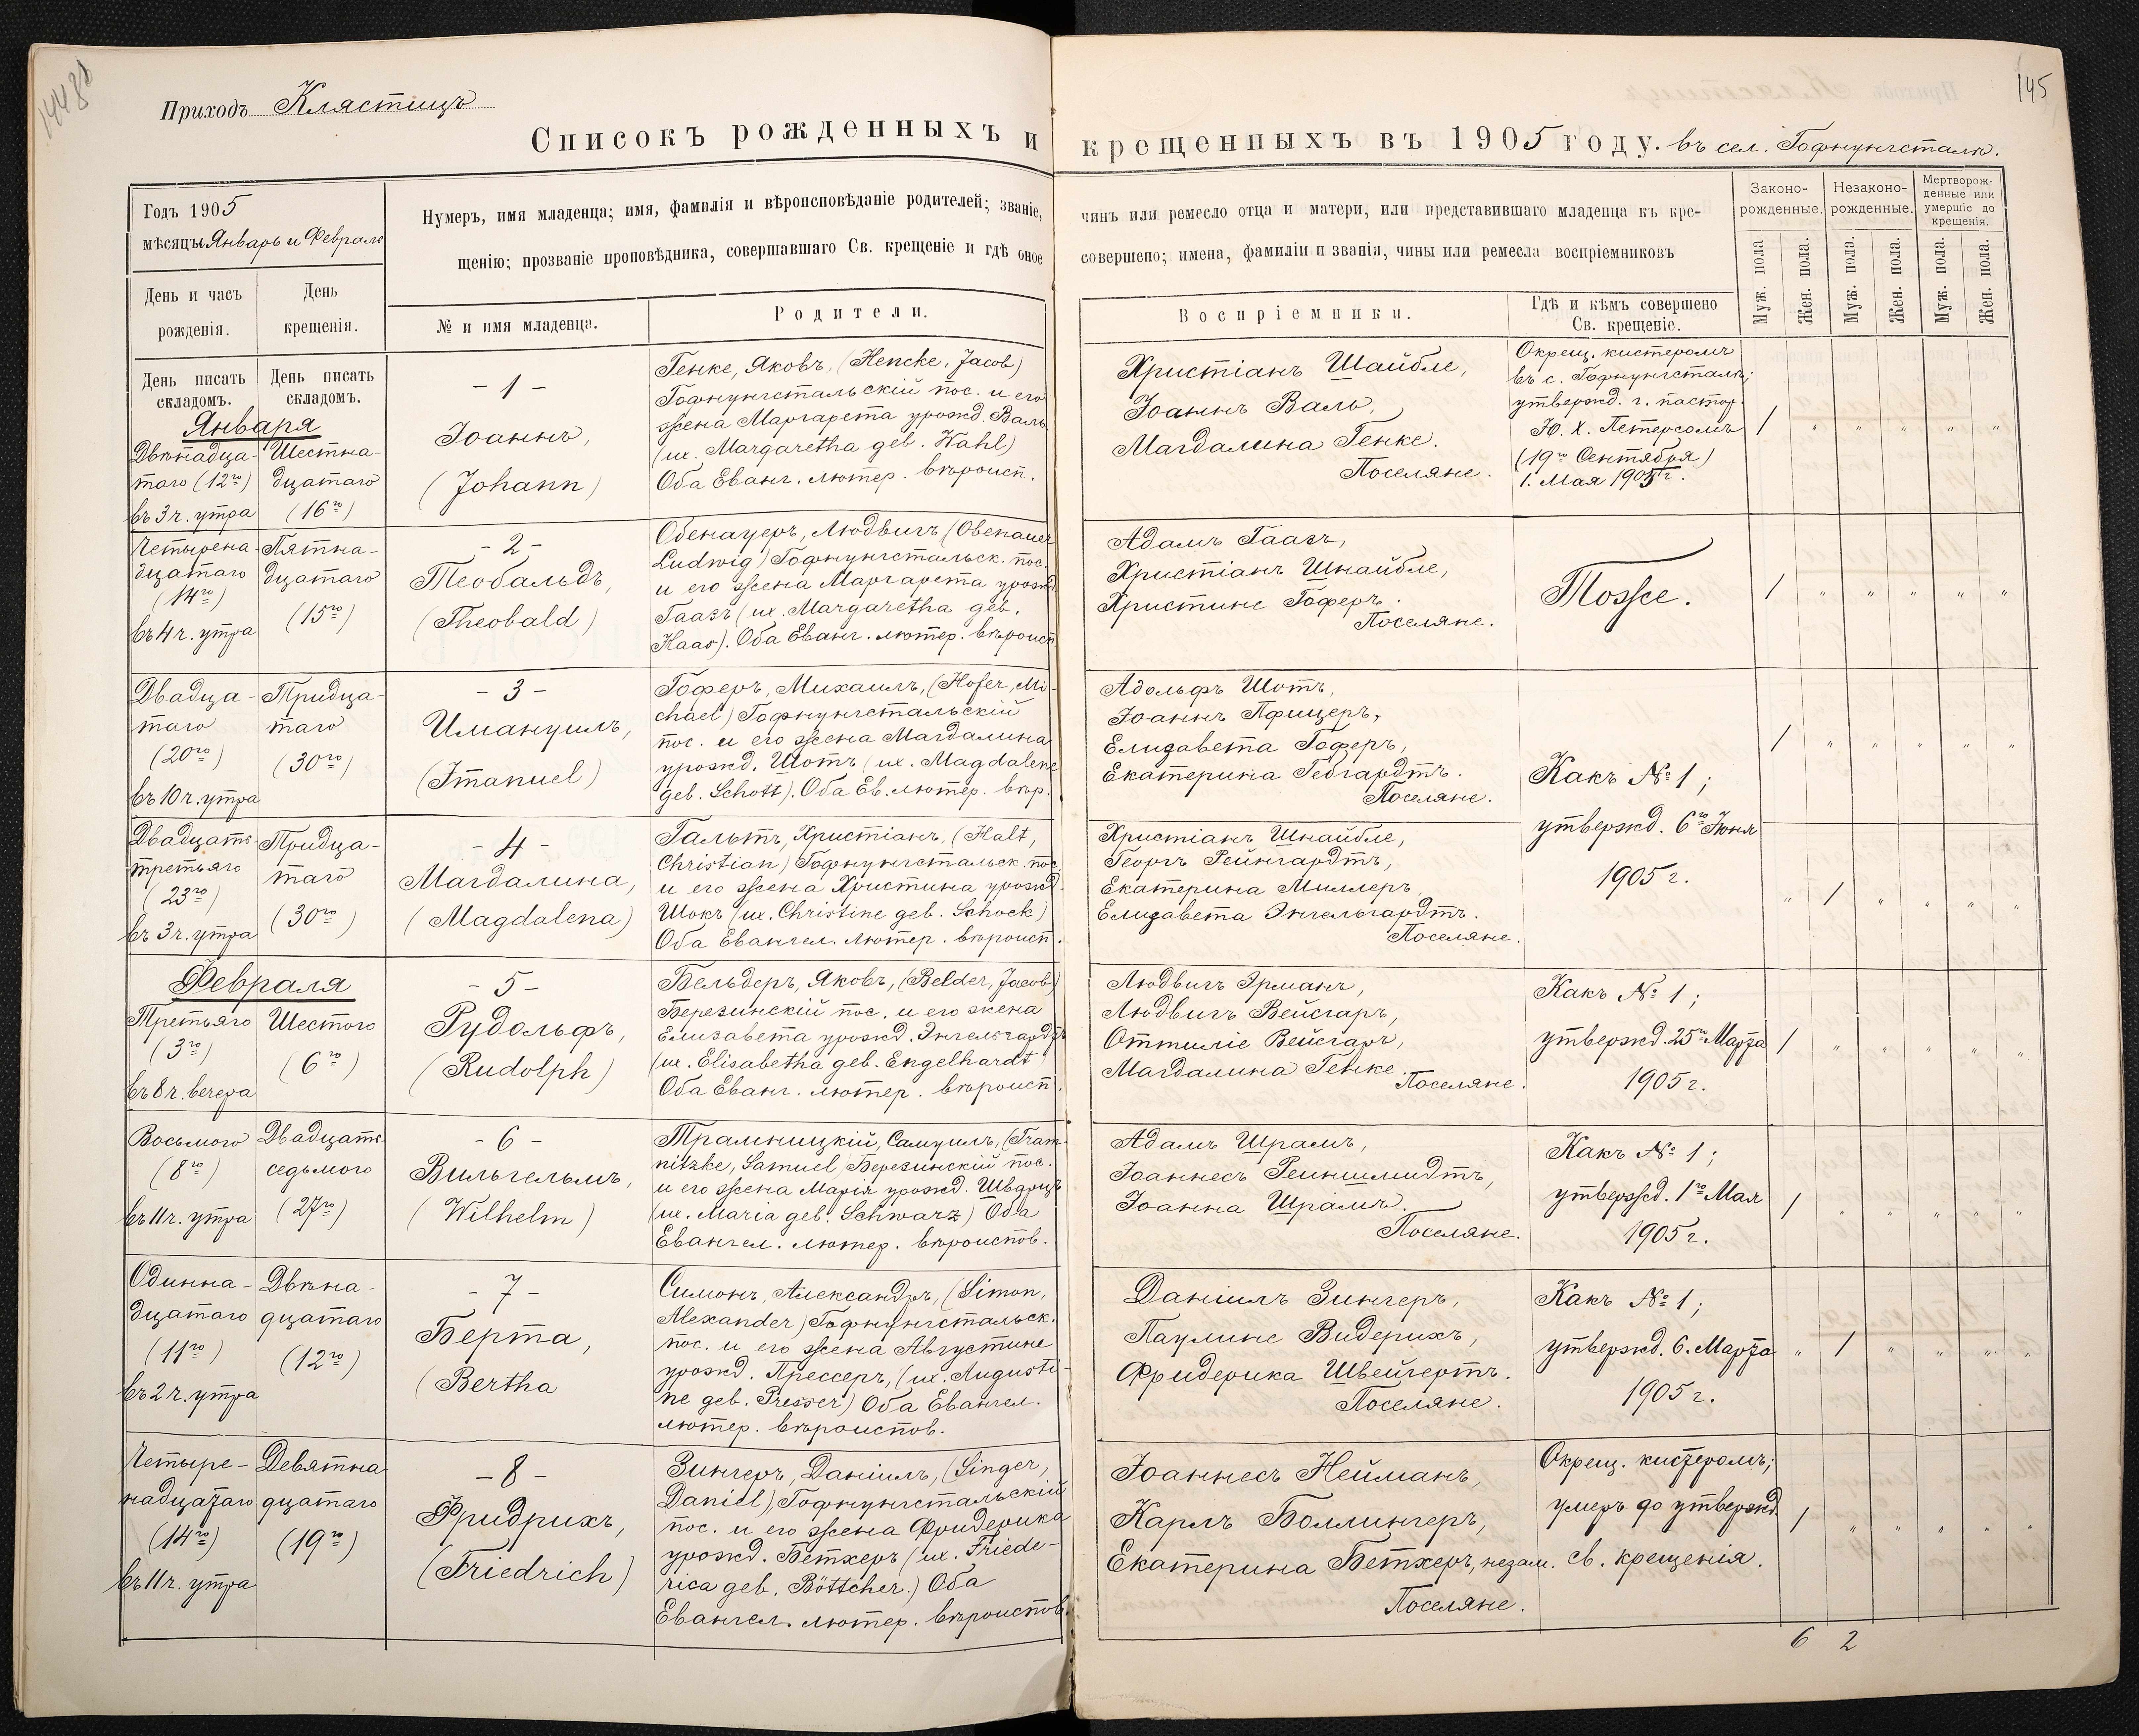 1448
145
Приходъ Клястицъ
Списокъ рожденныхъ и крещенныхъ въ 1905 году. въ сел. Гофнунгсталь.
Годъ 1905
мѣсяцы Январь и Февраль
Нумеръ, имя младенца; имя, фамилія и вѣроисповѣданіе родителей; званіе, чинъ или ремесло отца и матери, или представившаго младенца къ кре-
щенію; прозваніе проповѣдника, совершавшаго Св. крещеніе и гдѣ оное совершено; имена, фамиліи и званія, чины или ремесла воспріемниковъ
Законо-
рожденные.
Незаконо-
рожденные.
Мертворож-
денные или
умершіе до
крещенія.
День и часъ
рожденія.
День
крещенія.
№ и имя младенца.
Родители.
Воспріемники.
Гдѣ и кѣмъ совершено
Св. крещеніе.
Муж. пола
Жен. пола.
Муж. пола.
Жен. пола.
Муж. пола.
Жен. пола.
День писать
складомъ.
День писать
складомъ.
Января
Двѣнадца-
таго (12го)
въ 3 ч. утра
Шестна-
дцатаго
(16го)
- 1 -
Іоаннъ,
(Johann)
Генке, Яковъ, (Hencke, Jacob)
Гофнунгстальскій пос. и его
жена Маргарета урожд. Валь
(их. Margaretha geb. Wahl)
Оба Еванг. лютер. вѣроисп.
Христіанъ Шайбле,
Іоаннъ Валь,
Магдалина Генке.
Поселяне.
Окрещ. кистеромъ
въ с. Гофнунгсталь;
утвержд. г. пастор.
Ю. Х. Петерсомъ
(19го Сентября)
1. Мая 1905 г.
1 " " " " "
Четырена-
дцатаго
(14го)
въ 4 ч. утра
Пятна-
дцатаго
(15го)
- 2 -
Теобальдъ,
(Theobald)
Обенауеръ, Людвигъ (Obenauer
Ludwig) Гофнунгстальск. пос.
и его жена Маргарета урожд
Гаазъ (их. Margaretha geb.
Haas). Оба Еванг. лютер. вѣроисп.
Адамъ Гаазъ,
Христіанъ Шнайбле,
Христине Гоферъ.
Поселяне.
Тоже.
1 " " " " "
Двадца-
таго
(20го)
въ 10 ч. утра
Тридца-
таго
(30го)
- 3 -
Имануилъ,
(Imanuel)
Гоферъ, Михаилъ, (Hofer, Mi-
chael) Гофнунгстальскій
пос. и его жена Магдалина
урожд. Шотъ (их. Magdalene
geb. Schott). Оба Ев. лютер. вѣр.
Адольфъ Шотъ,
Іоаннъ Пфицеръ,
Елизавета Гоферъ,
Екатерина Гебгардтъ.
Поселяне.
Какъ № 1;
утвержд. 6го Іюня
1905 г.
1 " " " " "
Двадцать
третьяго
(23го)
въ 3 ч. утра
Тридца-
таго
(30го)
- 4 -
Магдалина,
(Magdalena)
Гальтъ, Христіанъ, (Halt,
Christian) Гофнунгстальск. пос
и его жена Христина урожд.
Шокъ (их. Christine geb. Schock)
Оба Евангел. лютер. вѣроисп.
Христіанъ Шнайбле,
Георгъ Рейнгардтъ,
Екатерина Миллеръ,
Елизавета Энгельгардтъ.
Поселяне.
" 1 " " " "
Февраля
Третьяго
(3го)
въ 8 ч. вечера
Шестого
(6го)
- 5 -
Рудольфъ,
(Rudolph)
Бельдеръ, Яковъ, (Belder, Jacob)
Березинскій пос. и его жена
Елизавета урожд. Энгельгардтъ
(их. Elisabetha geb. Engelhardt
Оба Еванг. лютер. вѣроисп.
Людвигъ Эрманъ,
Людвигъ Вейсгаръ,
Оттиліе Вейсгаръ,
Магдалина Генке.
Поселяне.
Какъ № 1;
утвержд. 25го Марта
1905 г.
1 " " " " "
Восьмого
(8го)
въ 11 ч. утра
Двадцать
седьмого
(27го)
- 6 -
Вильгельмъ,
(Wilhelm)
Трамницкій, Самуилъ, (Tram-
nitzke, Samuel) Березинскій пос.
и его жена Марія урожд. Шварцъ
(их. Maria geb. Schwarz) Оба
Евангел. лютер. вѣроиспов.
Адамъ Шрамъ,
Іоаннесъ Рейншмидтъ,
Іоанна Шрамъ.
Поселяне.
Какъ № 1;
утвержд. 1го Мая
1905 г.
1 " " " " "
Одинна-
дцатаго
(11го)
въ 2 ч. утра
Двѣна-
дцатаго
(12го)
- 7 -
Берта,
(Bertha
Симонъ, Александръ, (Simon,
Alexander) Гофнунгстальск.
пос. и его жена Августине
урожд. Прессеръ, (их. Augusti-
ne geb. Presser) Оба Евангел.
лютер. вѣроиспов.
Даніилъ Зингеръ,
Паулине Видерихъ,
Фридерика Швейгертъ.
Поселяне.
Какъ № 1;
утвержд. 6. Марта
1905 г.
" 1 " " " "
Четыре-
надцатаго
(14го)
въ 11 ч. утра
Девятна
дцатаго
(19го)
- 8 -
Фридрихъ,
(Friedrich)
Зингеръ, Даніилъ, (Singer,
Daniel), Гофнунгстальскій
пос. и его жена Фридерика
урожд. Бетхеръ (их. Friede-
rica geb. Böttcher.) Оба
Евангел. лютер. вѣроиспов
Іоаннесъ Нейманъ,
Карлъ Боллингеръ,
Екатерина Бетхеръ, незам.
Поселяне.
Окрещ. кистеромъ;
умеръ до утвержд
св. крещенія.
1 " " " " "
6 2